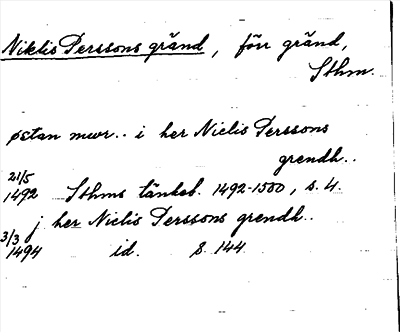 Niklis Perssons gränd, förr gränd,
Sthm.
østan mwr.. i her Niclis Perssons
grendh..
21/5
1492 Sthms tänkeb. 1492-1500, s. 4.
j her Niclis Perssons grendh..
3/3
1494 id. s. 144